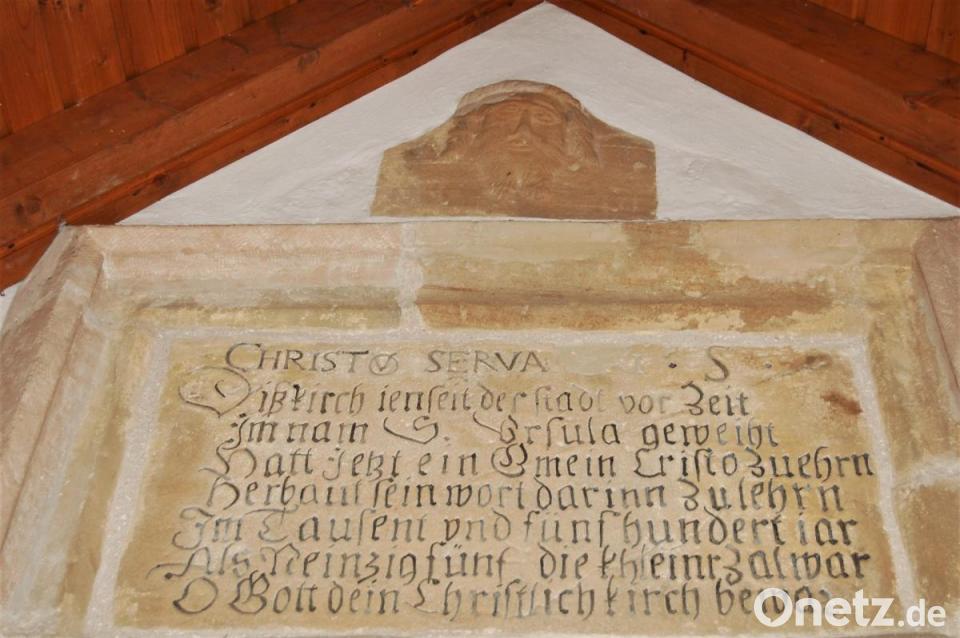 CHRISTO SERVA S.
Dißkirch ienseit der stadt vor Zeit
Im nam S. Ursula geweiht
Hatt Jetzt ein Gmein Cristo Zuehrn
Herbaut sein wort darinn Zu lehrn
Im Tausent vnd funf hundert iar
Als Neinzig fünf die khleinr Zal war
O Gott dein Christlich kirch
Onetz.de